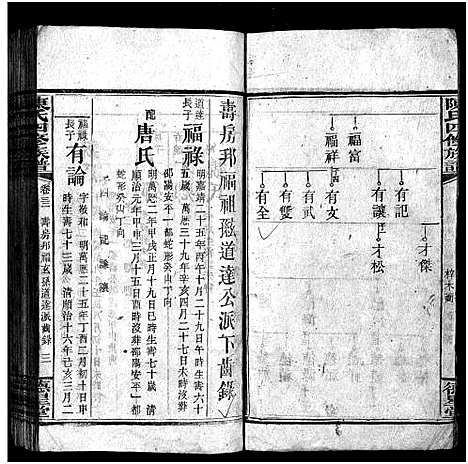 陳氏四修族譜
福富
福祥
有記
有讓
有玄
有武
有雙
有全
才傑
才松
壽房邦福祖孫道達公派下齒錄
道達長子
福祿
明嘉靖二十五年丙午十月二十九日午時生壽六十
五歲明萬歷三十九年辛亥四月二十七日未時沒葬
邵陽安平一都蛇形癸山丁向
配
唐氏
明萬歷二年甲戌正月十九日巳時生壽七十歲清
順治元年甲申三月十五日酉時沒葬邵陽安平一都
蛇形癸山丁向
子四論記讓
福祿長子
有論
字敬和明萬歷二十五年丁酉二月初十日申
時生壽七十三歲清順治十六年己亥三月二
陳氏四修族譜
卷三
壽房邦福玄孫道達派齒錄
三
德星堂